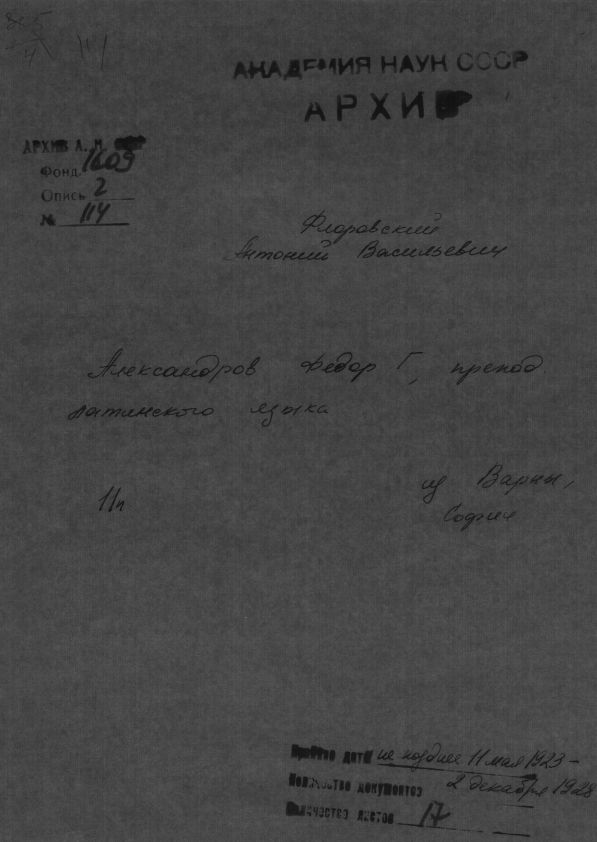 АКАДЕМИЯ НАУК СССР
АРХИВ
АРХИВ А. Н.
Фонд 1609
Опись 2
№ 114
Флоровский
Антоний Васильевич
Александров Федор Г, препод
латинского языка
11п
из Варны,
София
Крайние даты не позднее 11 мая 1923 –
2 декабря 1928
Количество документов
Количество листов 17